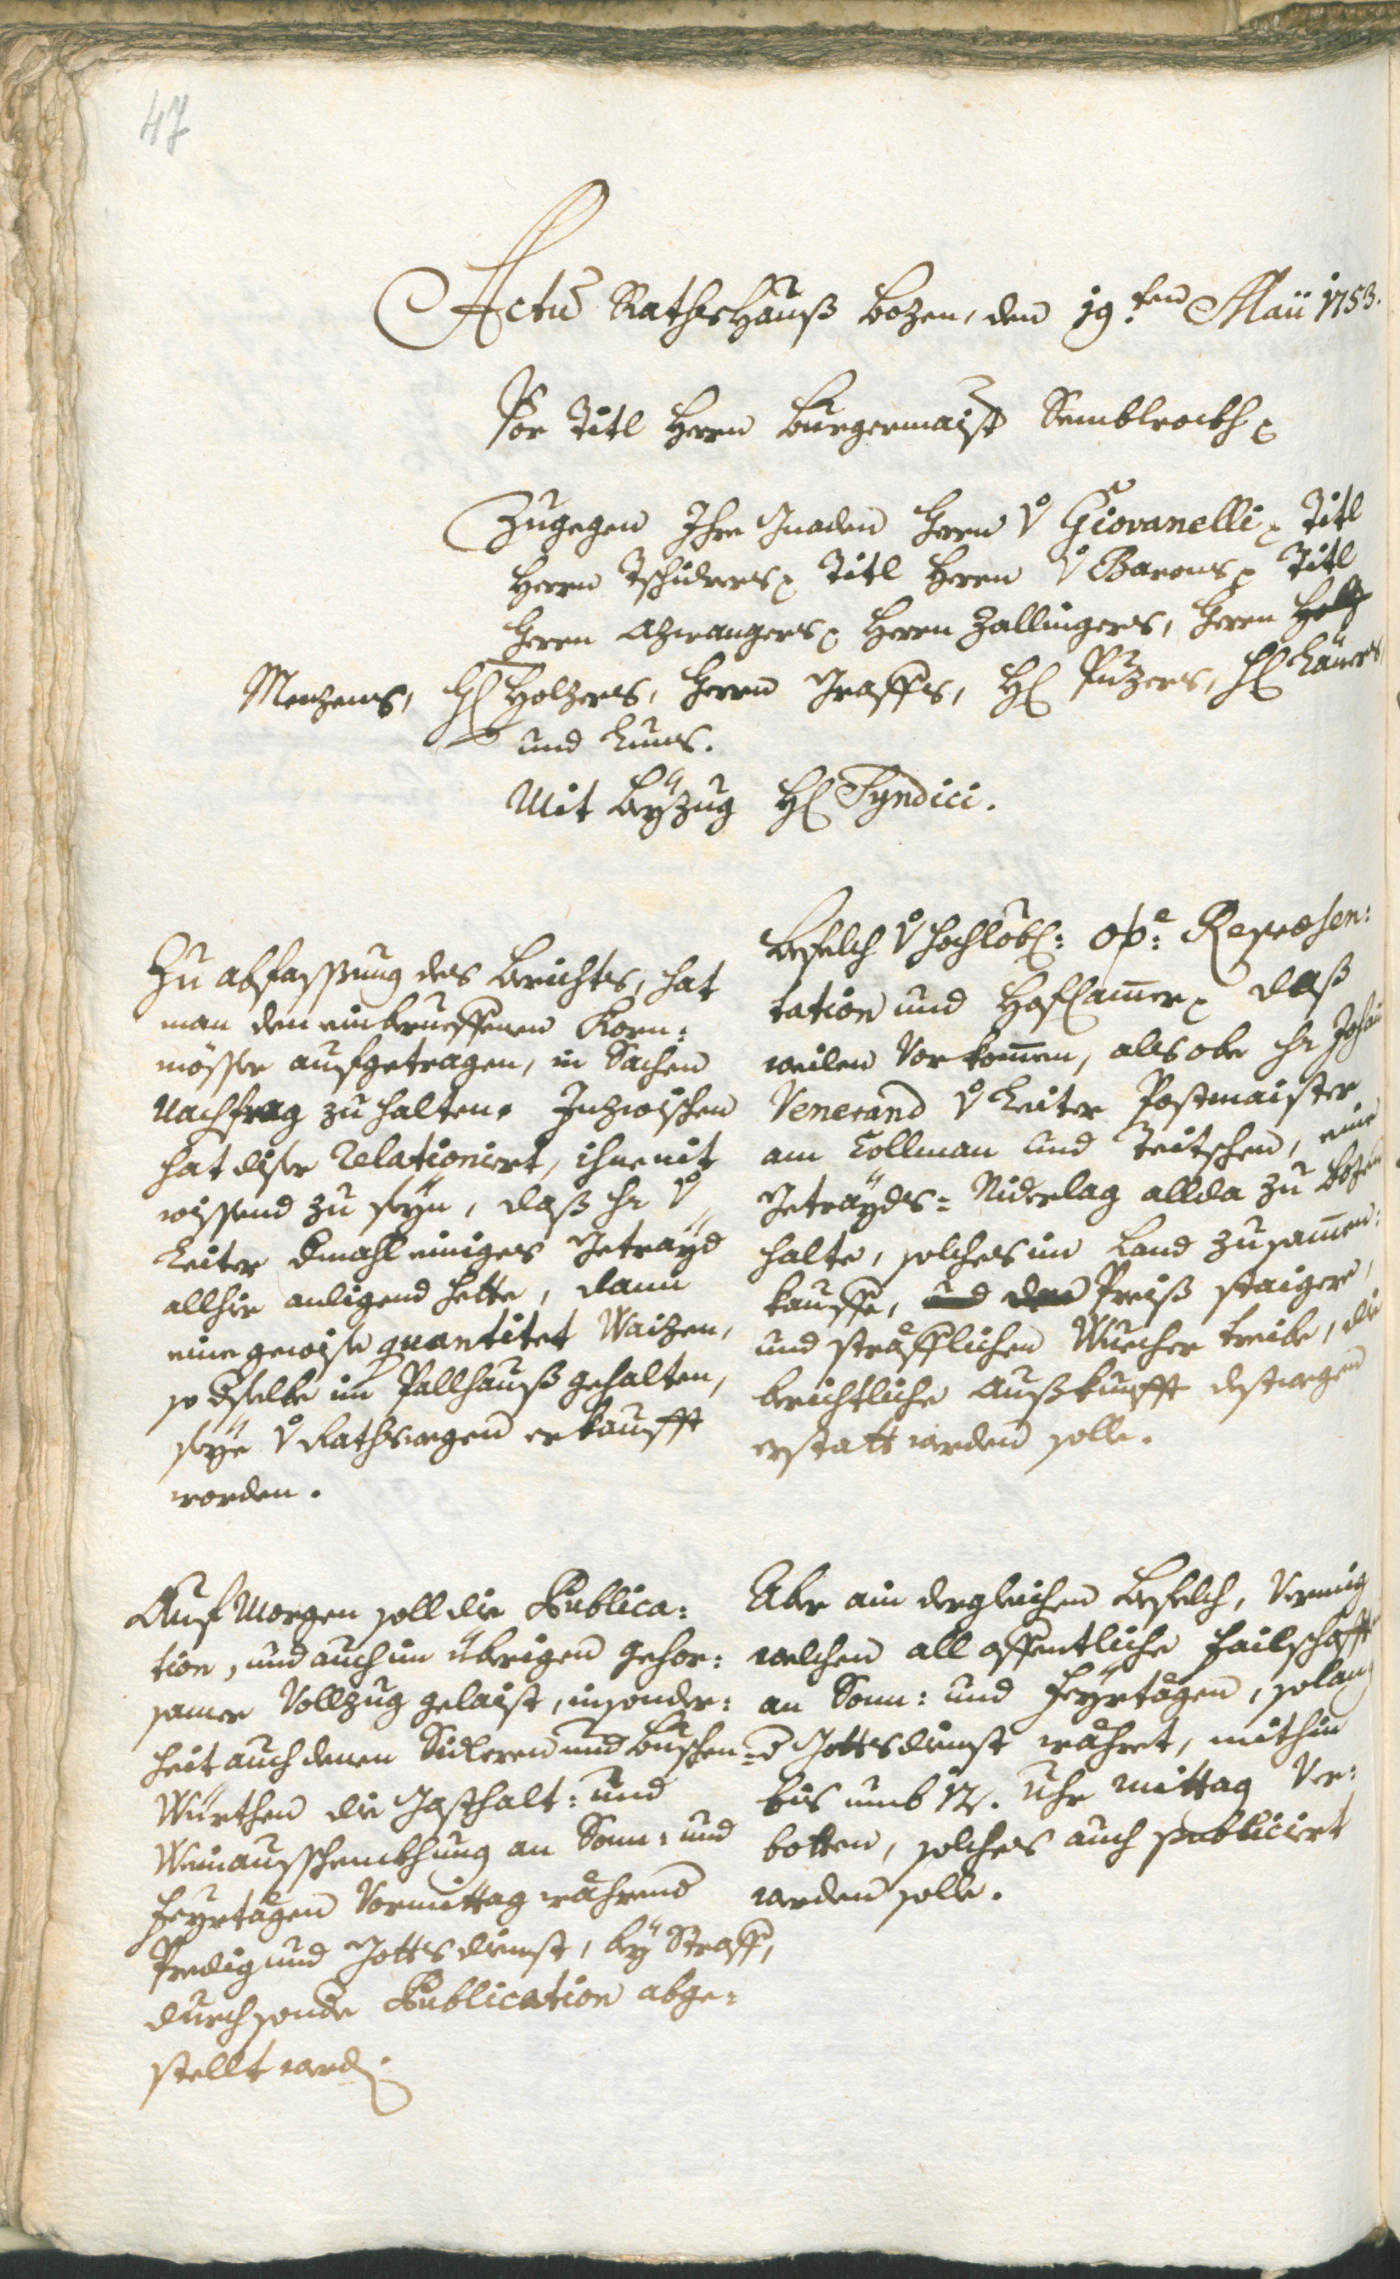 47
Actum Rathshauß Bozen, den 19.ten Maii 1753.
Vor Titl Herrn Burgermaister Semblrockh
Zugegen Ihro Gnaden Herrn v Giovanelli Titl
Herrn Tschiderers Titl Herrn v Barons Titl
Herrn Atzwangers Herrn Zallingers, Herrn
Menzens, H Holzers, Herrn Graffs, H Puzers, H
und
Mit Beyzug H Syndici.
Zu abfassung des Berichts, hat
man den einberueffenen Korn-
mösser aufgetragen, in Sachen
Nachfrag zu halten. Inzwischen
hat diser relationiert, ihme nit
wissend zu seyn, daß Hr v
Leiter dmahl einiges Getrayd
allhie anligend hette, dann
eine gewise quantitet Waizen,
so dselbe im Pallhauß gehalten,
seye v Rathswegen erkaufft
worden.
Befelch v hochlöbl: o:ö: Repræsen-
tation und Hofcammer daß
weilen vorkommen, als obe Hr Johan
Venerand v Leiter Postmaister
am Collman und Teitschen, eine
Getrayds-Niderlag allda zu Bozen
halte, solches im Land zusammen-
kauffe, und den Preiß staigere,
und sträfflichen Wuecher treibe, die
berichtliche Außkunfft destwegen
erstatt werden solle.
Auf Morgen soll die Publica-
tion, und auch im übrigen gehor-
samer Vollzug gelaist, insonder-
heit auch denen Sidleren und Buschen-
Würthen die Gasthalt- und
Weinausschenkhung an Sonn- und
Feyrtägen Vormittag während
Predig und Gottsdienst, bey Straff,
durch sonde Publication abge-
stellt werd.
Aber ain dergleichen Befelch, Vermig
welchen all offentliche Failschafft
an Sonn- und Feyrtägen, solang
d Gottsdienst währet, mithin
bis umb 12. Uhr mittag Ver-
botten, solches auch publiciert
werden solle.